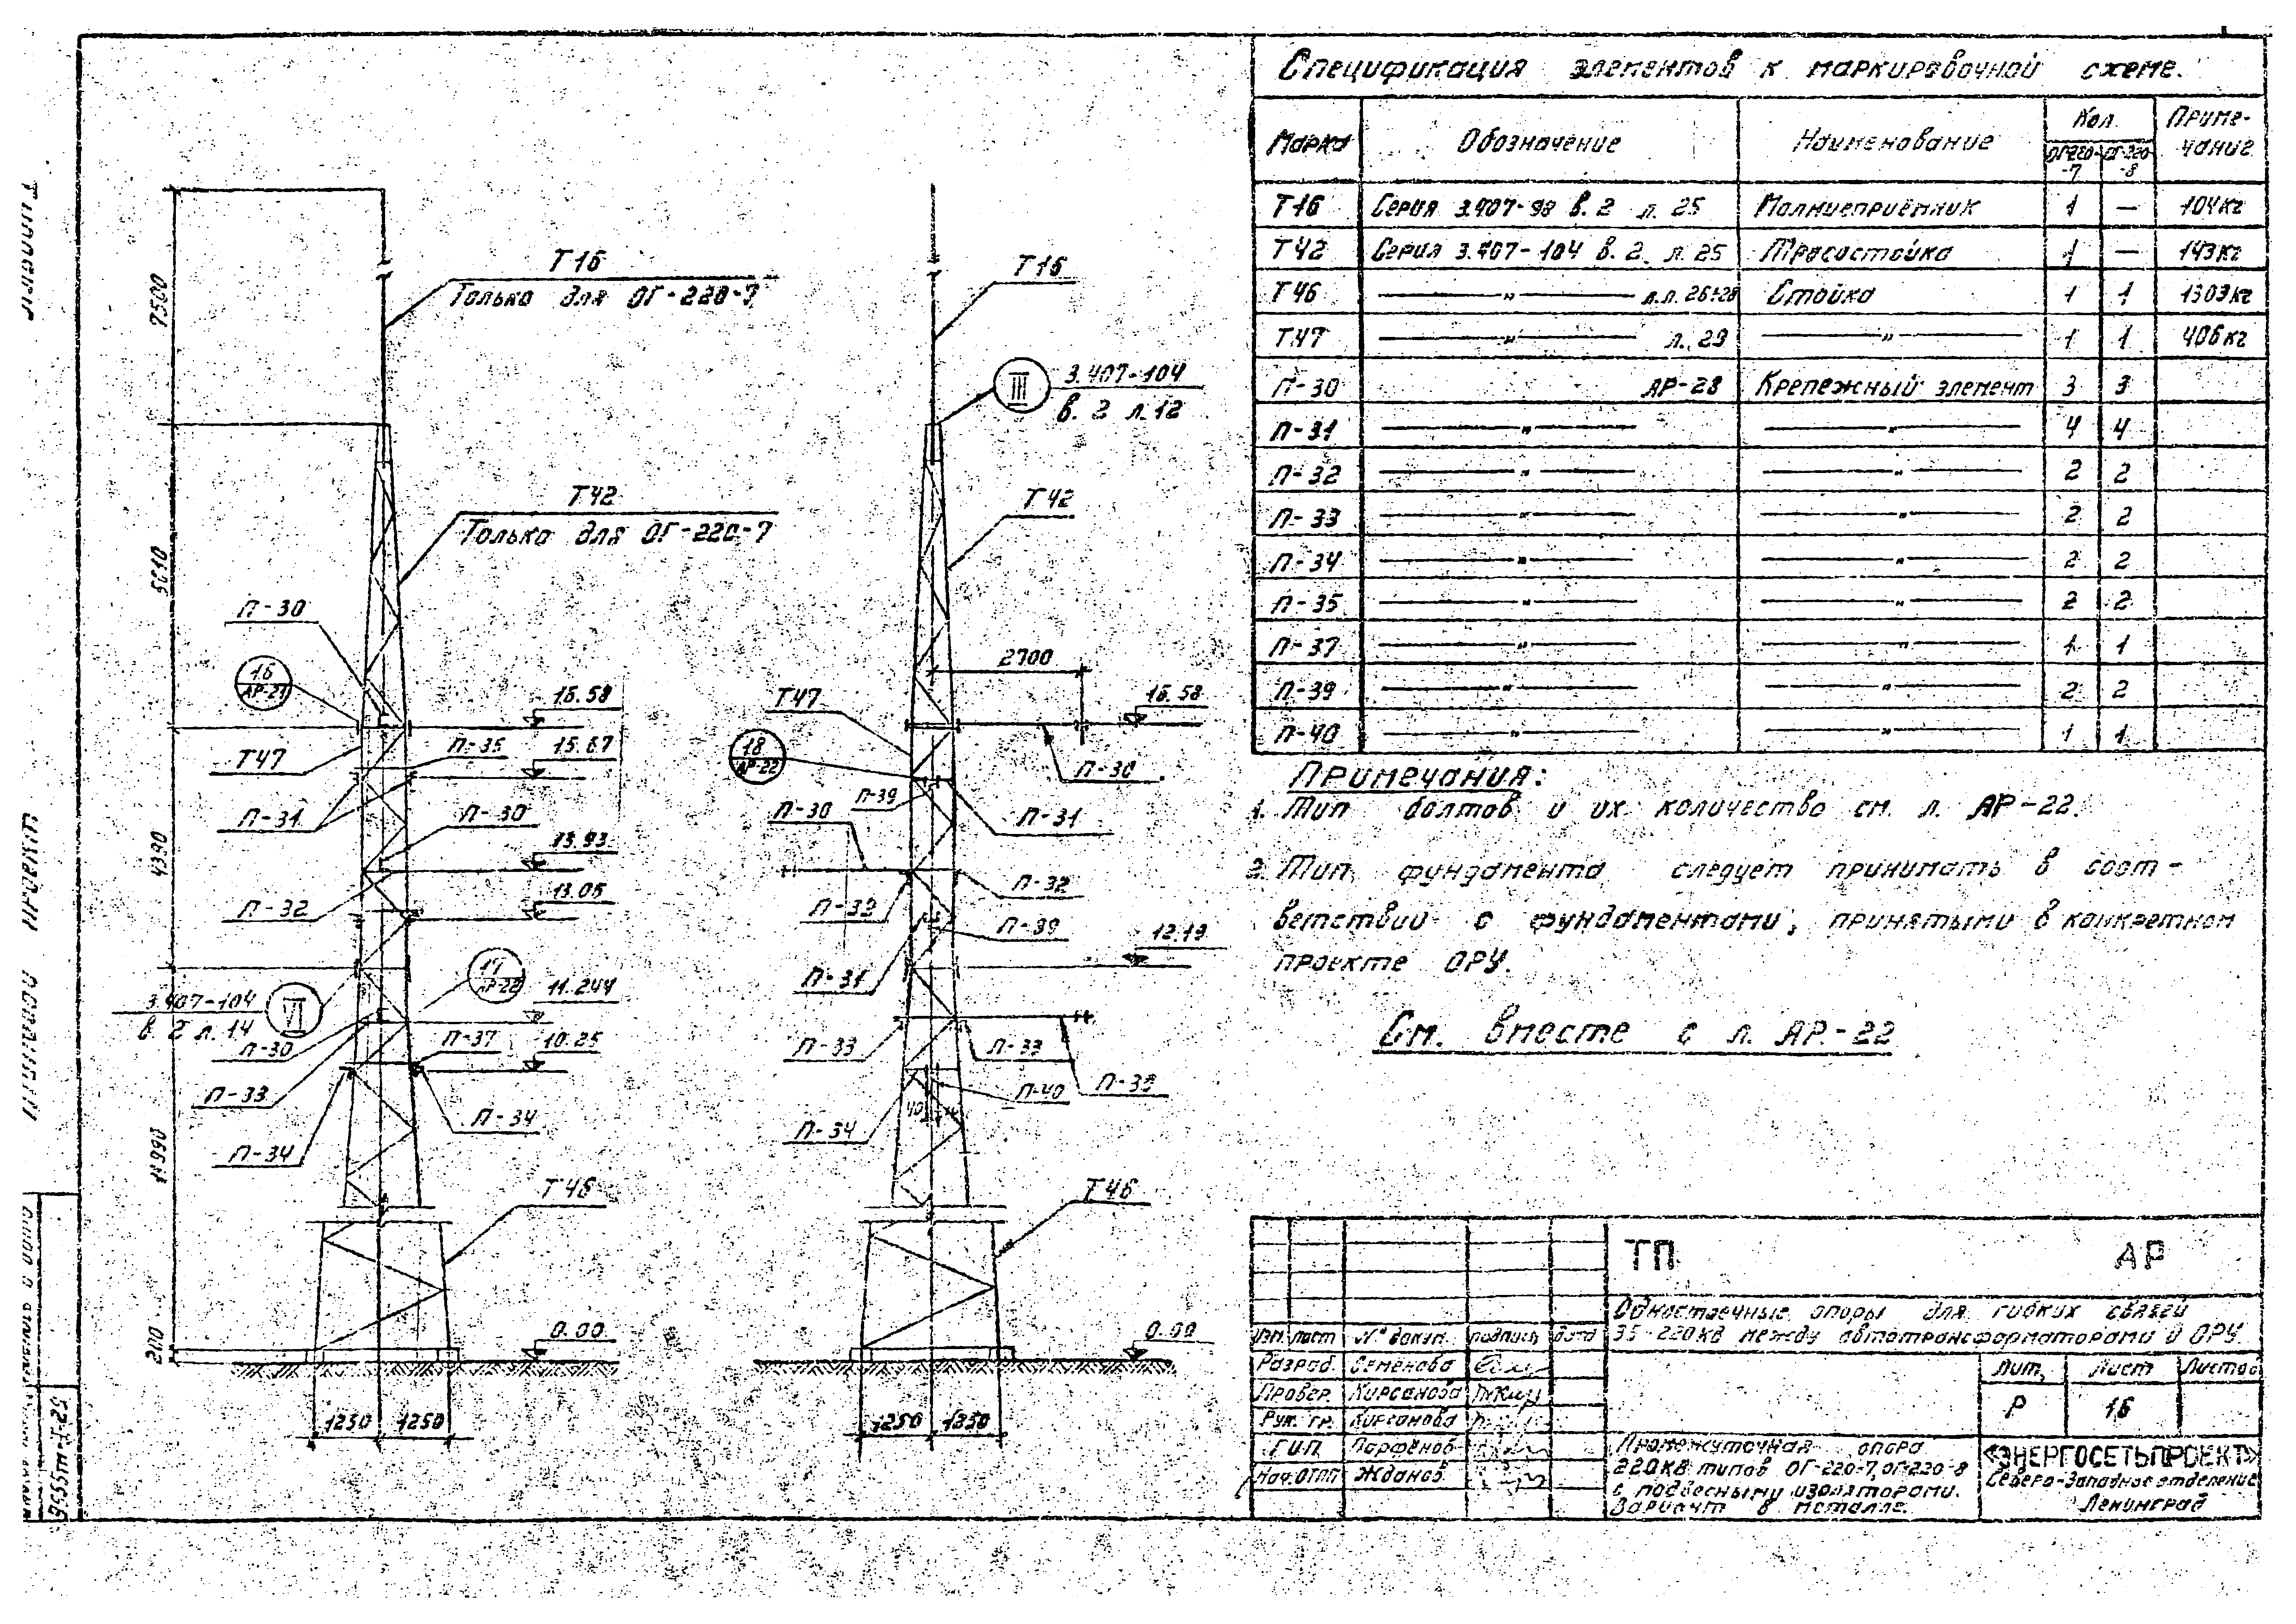 Спецификация элементов к маркировочной схеме.
Марка Обозначение Наименование Кол. Приме-чание
ОГ-220-7 ОГ-220-8
Т16 Серия 3.407-98 в.2 л. 25 Молниеприёмник 1 — 104кг
Т42 Серия 3.407-104 в.2. л. 25 Тросостойка 1 — 143кг
Т46 —„— л.л. 26÷28 Стойка 1 1 1303кг
Т47 —„— л. 29 —„— 1 1 406кг
П-30 АР-28 Крепежный элемент 3 3
П-31 —„— —„— 4 4
П-32 —„— —„— 2 2
П-33 —„— —„— 2 2
П-34 —„— —„— 2 2
П-35 —„— —„— 2 2
П-37 —„— —„— 1 1
П-39 —„— —„— 2 2
П-40 —„— —„— 1 1
Примечания:
1. Тип болтов и их количество см. л. АР-22.
2. Тип фундамента следует принимать в соот-
ветствии с фундаментами, принятыми в конкретном
проекте ОРУ.
См. вместе с л. АР-22
7500
4390
11990
Т16
Только для ОГ-220-7
Т42
Только для ОГ-220-7
П-30
16
АР-21
16.58
Т47
П-35
15.67
П-31
П-30
13.93
П-32
13.05
17
АР-22
3.407-104
в. 2 л. 14
VI
11.244
П-30
П-37
10.25
П-33
П-34
П-34
Т46
0.00
1250 1250
Т16
III
3.407-104
в. 2 л. 12
Т42
2700
Т47
16.58
18
АР-22
П-30
П-39
П-30
П-31
П-32
П-39
П-31
12.19
П-33
П-33
П-40
П-34
40
Т46
0.00
1250 1250
ТП АР
Одностоечные опоры для гибких связей
35-220кв между автотрансформаторами и ОРУ.
Изм. лист № докум. подпись дата
Разраб. Семёнова
Провер. Кирсанова
Рук. гр. Кирсанова
ГИП Парфёнов
Нач. ОТПП Жданов
Лит. Лист Листов
Р 16
Промежуточная опора
220кв типов ОГ-220-7, ОГ-220-8
с подвесными изоляторами.
Вариант в металле.
«ЭНЕРГОСЕТЬПРОЕКТ»
Северо-Западное отделение
Ленинград